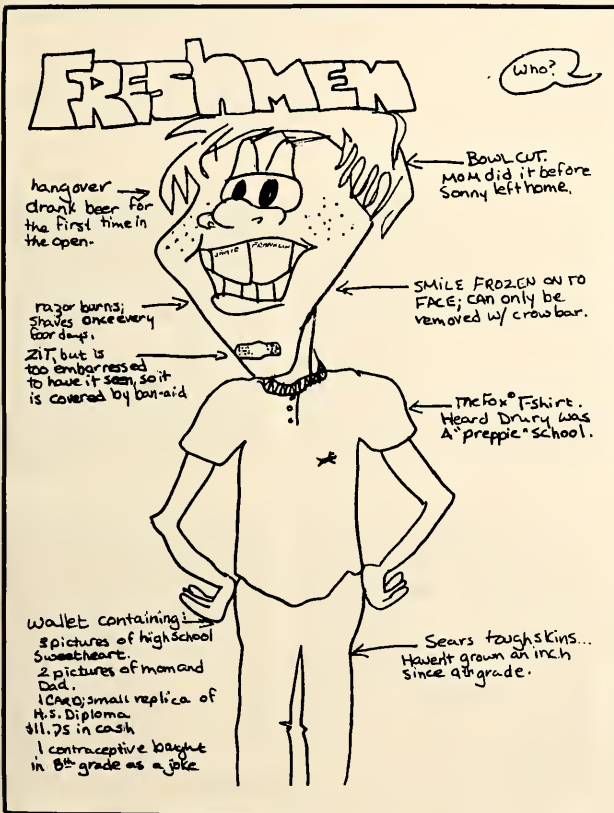 FRESHMEN
Who?
hangover
drank beer for
the first time in
the open.
BOWL CUT.
MOM did it before
Sonny left home.
razor burns;
shaves once every
four days.
SMILE FROZEN ON TO
FACE; CAN only be
removed w/ crowbar.
ZIT, but is
too embarressed
to have it seen, so it
is covered by ban-aid
McFox® T-shirt.
Heard Drury was
A "preppie" school.
wallet containing:
3 pictures of high school
Sweetheart.
2 pictures of mom and
Dad.
1 CARD; small replica of
H.S. Diploma
$11.75 in cash
1 contraceptive bought
in 8th grade as a joke
Sears toughskins...
Havent grown an inch
since 9th grade.